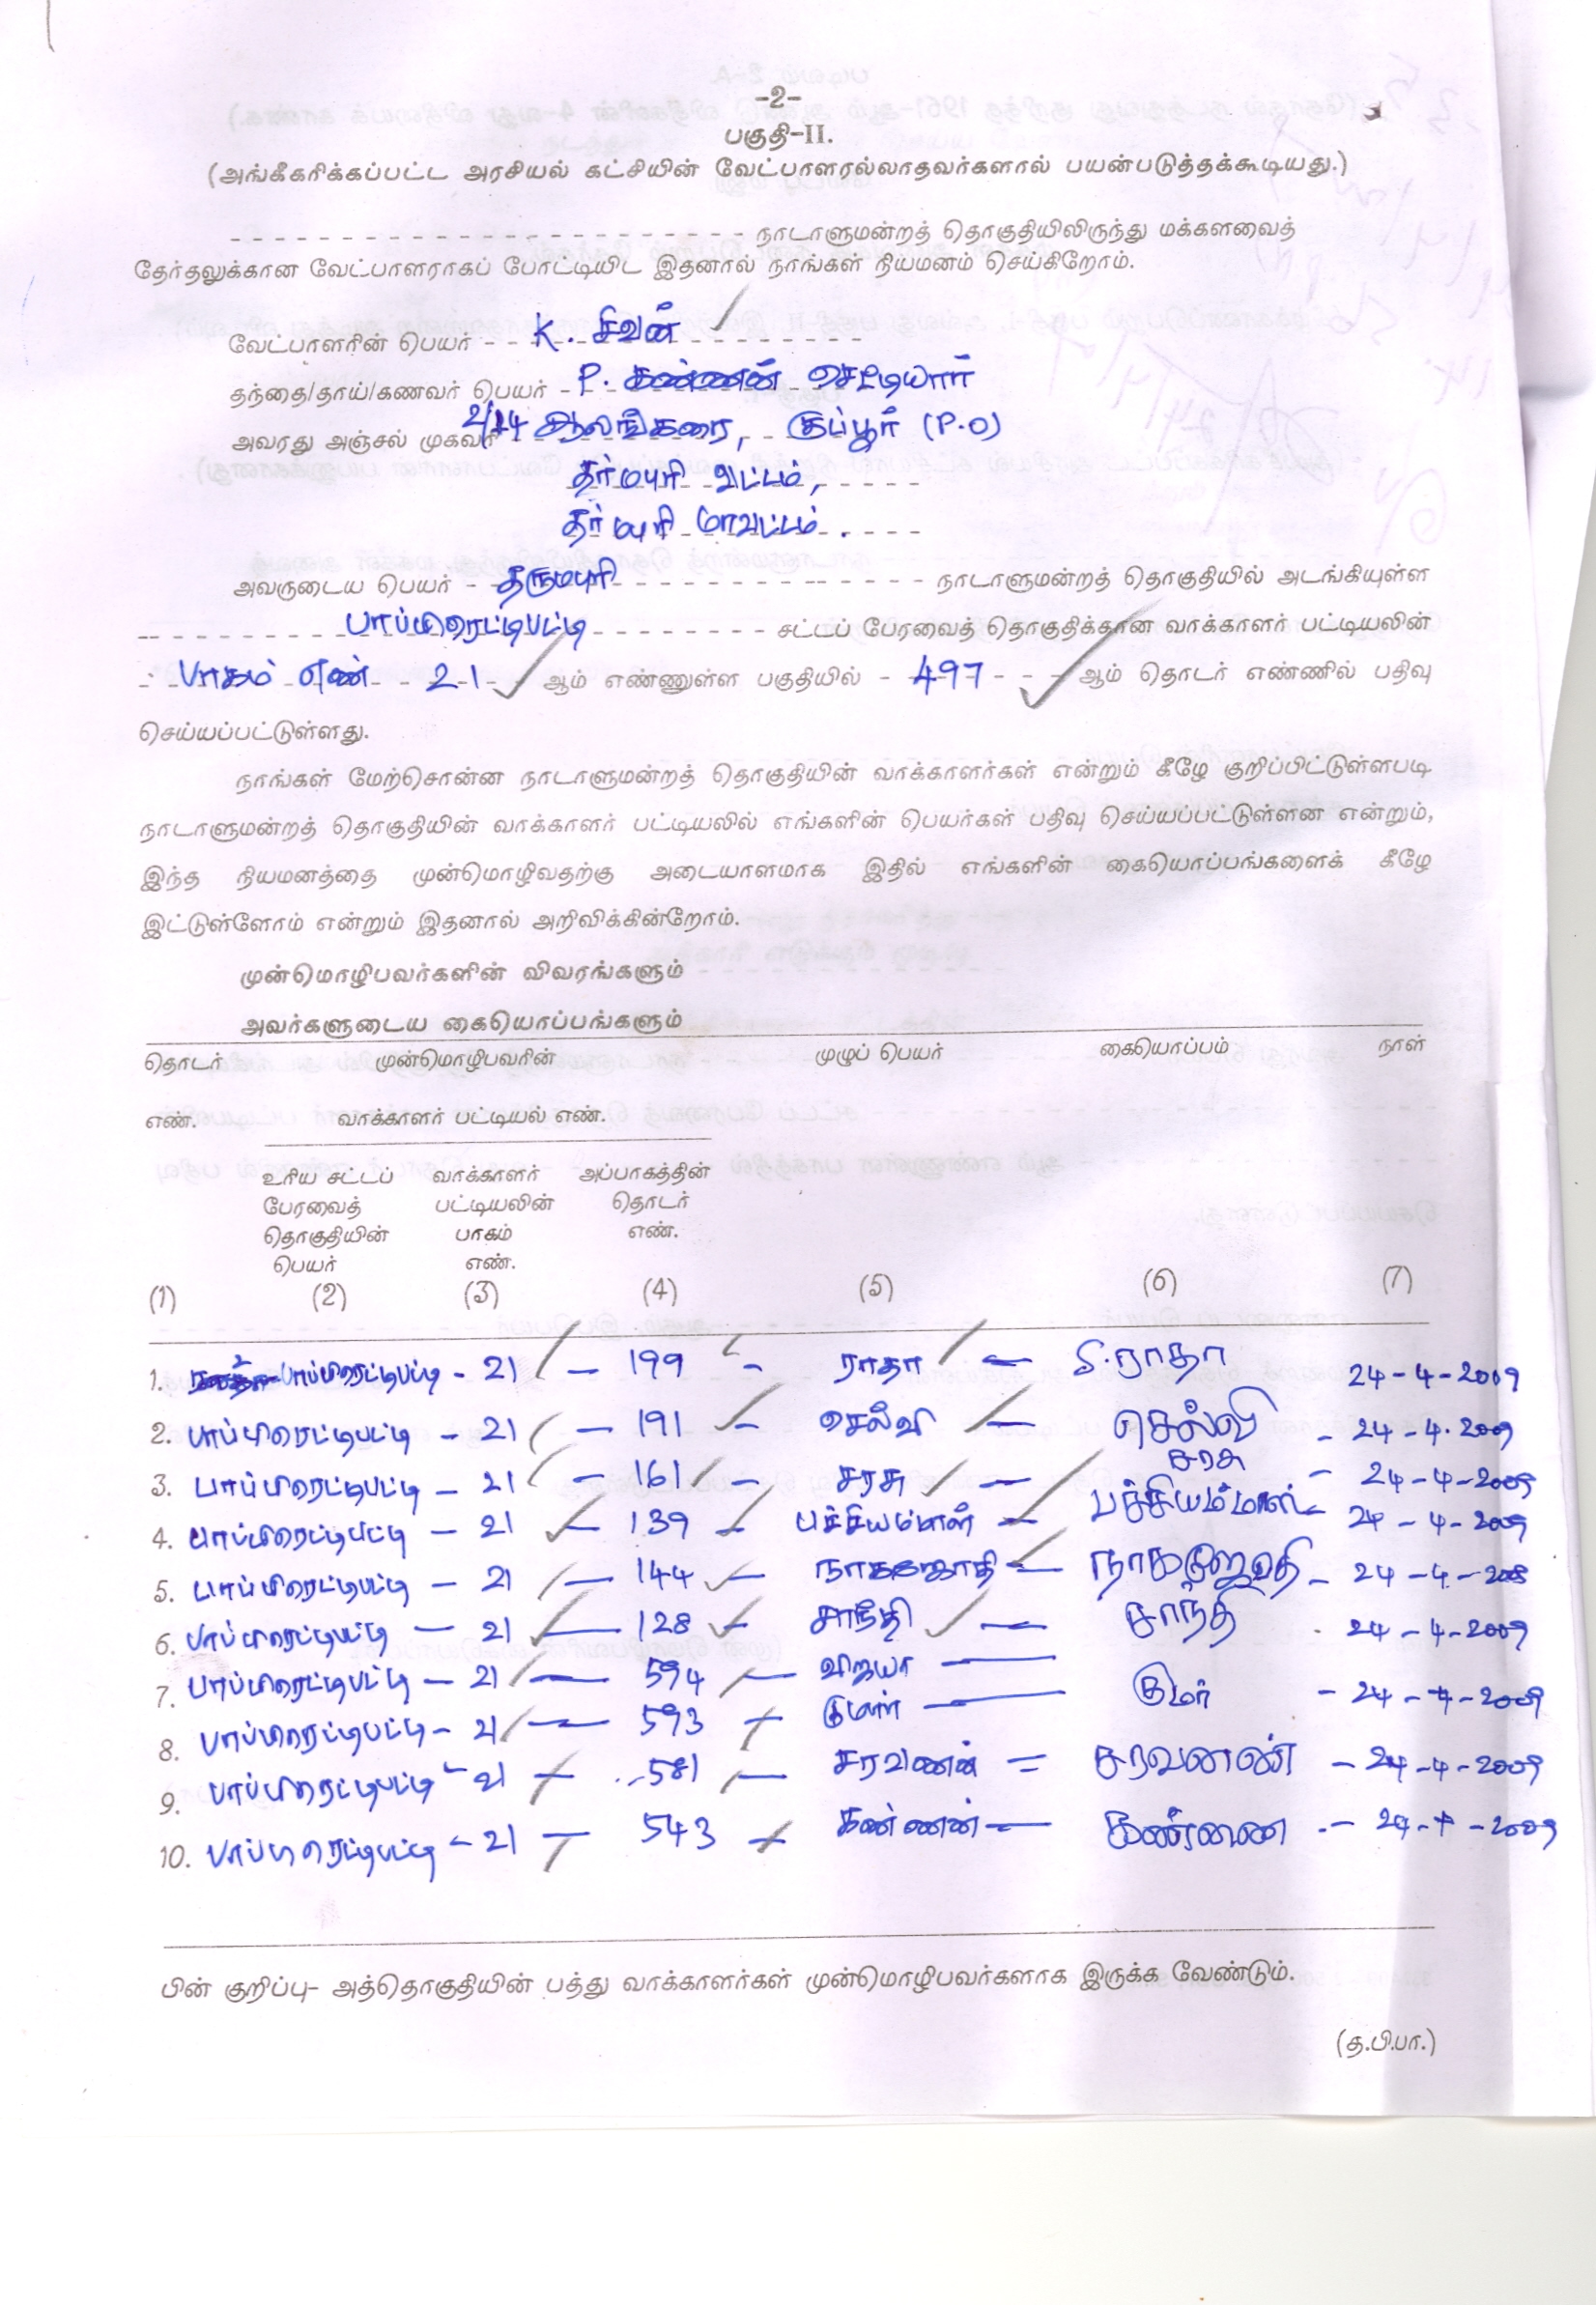 -2-
பகுதி-II.
(அங்கீகரிக்கப்பட்ட அரசியல் கட்சியின் வேட்பாளரல்லாதவர்களால் பயன்படுத்தக்கூடியது.)
நாடாளுமன்றத் தொகுதியிலிருந்து மக்களவைத்
தேர்தலுக்கான வேட்பாளராகப் போட்டியிட இதனால் நாங்கள் நியமனம் செய்கிறோம்.
வேட்பாளரின் பெயர் - K. சிவன்
தந்தை/தாய்/கணவர் பெயர் - P. கண்ணன் செட்டியார்
அவரது அஞ்சல் முகவரி 2/14 ஆலங்கரை, குப்பூர் (P.O)
தர்மபுரி வட்டம்,
தர்மபுரி மாவட்டம்.
அவருடைய பெயர் - தருமபுரி - நாடாளுமன்றத் தொகுதியில் அடங்கியுள்ள
பாப்பிரெட்டிபட்டி - சட்டப் பேரவைத் தொகுதிக்கான வாக்காளர் பட்டியலின்
பாகம் எண் 21 ஆம் எண்ணுள்ள பகுதியில் - 497 - ஆம் தொடர் எண்ணில் பதிவு
செய்யப்பட்டுள்ளது.
நாங்கள் மேற்சொன்ன நாடாளுமன்றத் தொகுதியின் வாக்காளர்கள் என்றும் கீழே குறிப்பிட்டுள்ளபடி
நாடாளுமன்றத் தொகுதியின் வாக்காளர் பட்டியலில் எங்களின் பெயர்கள் பதிவு செய்யப்பட்டுள்ளன என்றும்,
இந்த நியமனத்தை முன்மொழிவதற்கு அடையாளமாக இதில் எங்களின் கையொப்பங்களைக் கீழே
இட்டுள்ளோம் என்றும் இதனால் அறிவிக்கின்றோம்.
முன்மொழிபவர்களின் விவரங்களும்
அவர்களுடைய கையொப்பங்களும்
தொடர் முன்மொழிபவரின் முழுப் பெயர் கையொப்பம் நாள்
எண். வாக்காளர் பட்டியல் எண்.
உரிய சட்டப் வாக்காளர் அப்பாகத்தின்
பேரவைத் பட்டியலின் தொடர்
தொகுதியின் பாகம் எண்.
பெயர் எண்.
(1) (2) (3) (4) (5) (6) (7)
1. பாப்பிரெட்டிபட்டி - 21 - 199 - ராதா - S.ராதா 24-4-2009
2. பாப்பிரெட்டிபட்டி - 21 - 191 - செல்வி - செல்வி - 24-4.2009
3. பாப்பிரெட்டிபட்டி - 21 - 161 - சரசு - சரசு - 24-4-2009
4. பாப்பிரெட்டிபட்டி - 21 - 139 - பச்சியம்மாள் - பச்சியம்மாள் - 24-4-2009
5. பாப்பிரெட்டிபட்டி - 21 - 144 - நாகஜோதி - - 24-4-
6. பாப்பிரெட்டிபட்டி - 21 - 128 - சாந்தி - சாந்தி 24-4-2009
7. பாப்பிரெட்டிபட்டி - 21 - 594 - விஜயா -
8. பாப்பிரெட்டிபட்டி - 21 - 593 - குமார் - குமர் - 24-4-2009
9. பாப்பிரெட்டிபட்டி - 21 - 581 - சரவணன் = சரவனண் - 24-4-2009
10. பாப்பிரெட்டிபட்டி - 21 - 543 - கண்ணன் - - 24-4-2009
பின் குறிப்பு- அத்தொகுதியின் பத்து வாக்காளர்கள் முன்மொழிபவர்களாக இருக்க வேண்டும்.
(த.பி.பா.)